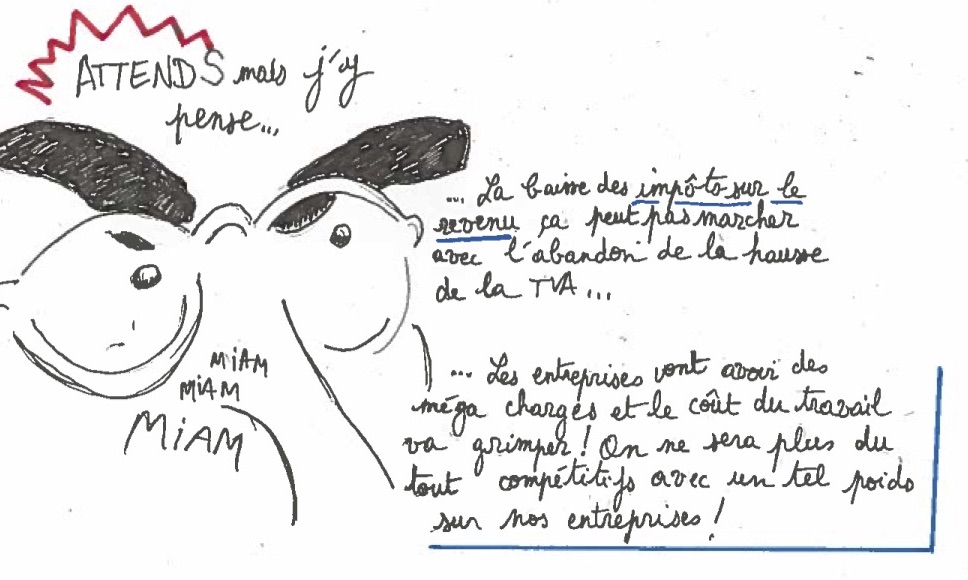 ATTENDS mais j'y
pense...
... La baisse des impôts sur le
revenu ça peut pas marcher
avec l'abandon de la hausse
de la TVA ...
MiAM
MiAM
MiAM
... Les entreprises vont avoir des
méga charges et le coût du travail
va grimper ! On ne sera plus du
tout compétitifs avec un tel poids
sur nos entreprises !